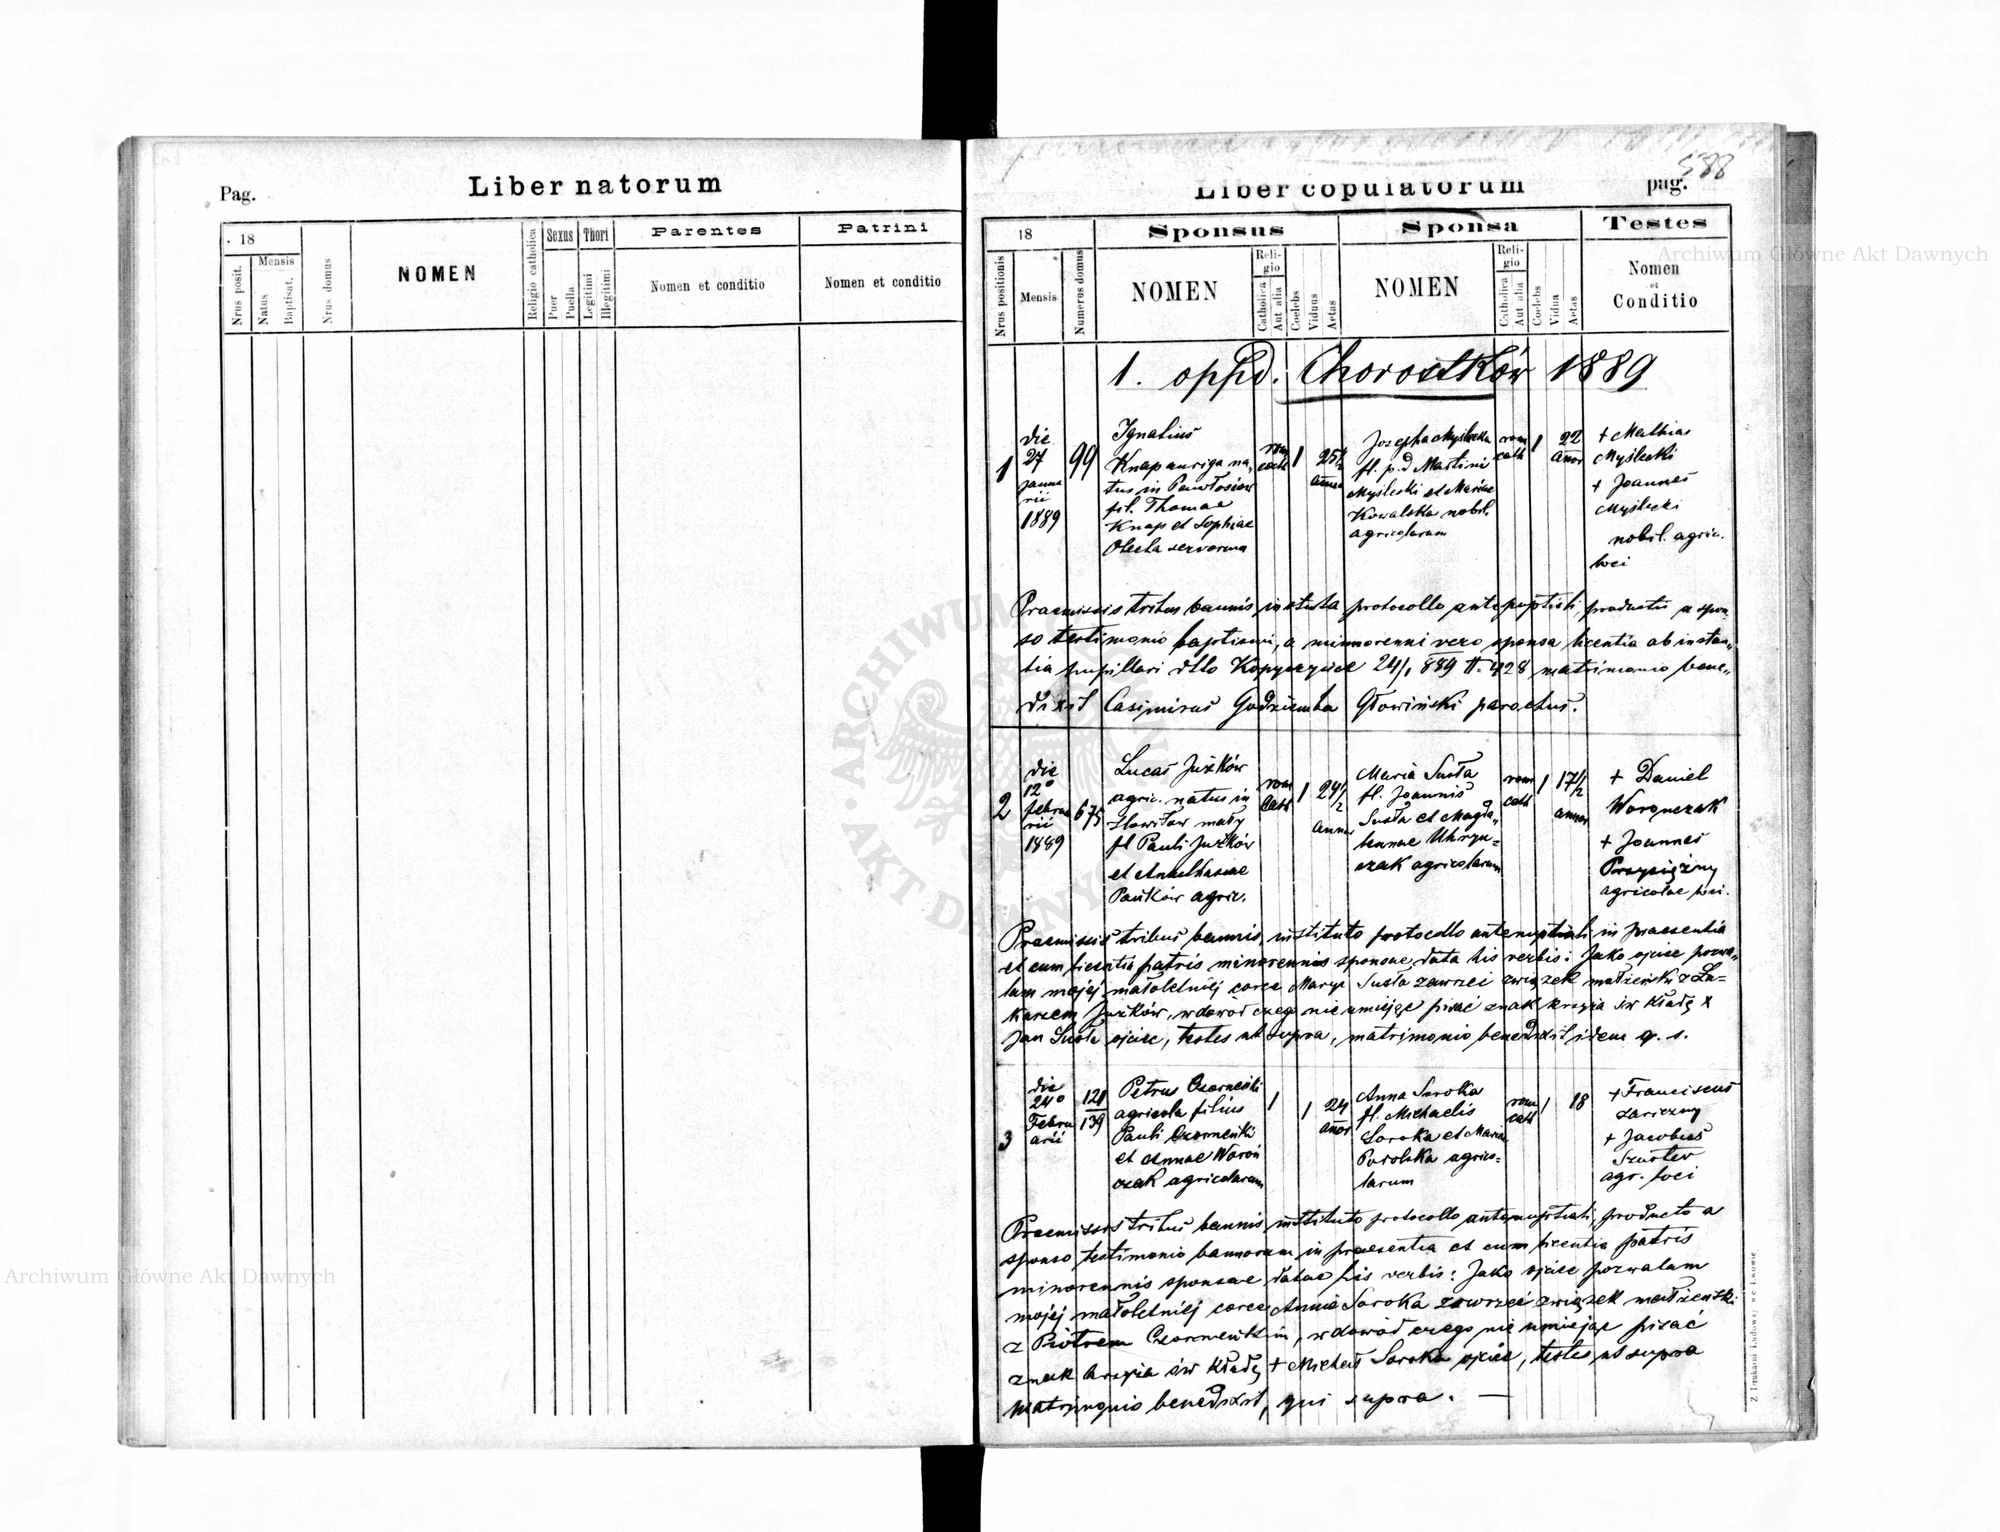 Pag.
Liber natorum
18
Nrus posit.
Mensis
Natus
Baptisat.
Nrus domus
NOMEN
Religio catholica
Sexus
Puer
Puella
Thori
Legitimi
Illegitimi
Parentes
Nomen et conditio
Patrini
Nomen et conditio
588
Liber copulatorum
pag.
18
Nrus positionis
Mensis
Numerus domus
Sponsus
NOMEN
Reli-
gio
Catholica
Aut alia
Coelebs
Viduus
Aetas
Sponsa
NOMEN
Reli-
gio
Catholica
Aut alia
Coelebs
Vidua
Aetas
Testes
Nomen
et
Conditio
1. oppd. Chorostków 1889
1
die
27
janua
rii
1889
99
Ignatius
Knap auriga na,
tus in Pawłosiow
fil. Thomae
Knap et Sophiae
servorum
rom
cath
1
25 1/2
annor
Josepha Myślecka
fl. p.d Martini
Myślecki et Mariae
Kowalska nobil.
agricolarum
rom
cath
1
22
annor
+ Mathias
Myślecki
+ Joannes
Myślecki
nobil. agric.
loci
Praemissis tribus bannis, protocollo antenuptiali, producto a spon-
so testimonio baptismi, a minorenni vero sponsa licentia ab instan„
tia pupillari dtto Kopyczyńce 24/1 889 N. 428, matrimonio bene„
dixit Casimirus Godziemba Głowiński parochus.
2
die
12o
febru
rii
1889
675
Lucas Jużków
agric. natus in
mały
fl Pauli Jużków
et Anasthasiae
Pańków agric.
rom
Cath
1
24 1/2
annor
Maria Susła
fl. Joannis
Susła et Magda„
lennae Uhryn-
czak agricolarum
rom
cath
1
17 1/2
annor
+ Daniel
Woronczak
+ Joannes
Przysiężny
agricolae loci.
Praemissis tribus bannis, instituto protocollo antenuptiali in praesentia
et cum licentia patris minorennis sponsae data his verbis: Jako ojciec pozwa„
lam mojej małoletniej corce Maryi Susła zawrzei związek małżeński z Łu-
kaszem Jużków, w dowód czego nie umiejąc pisać znak krzyża św kładę x
Jan Susła ojciec, testes ut supra, matrimonio benedixit idem q. s.
3
die
24o
Febru
arii
121
139
Petrus Czormeński
agricola filius
Pauli Czormeński
et Annae Woroń
czak agricolarum
1
1
24
annor
Anna Soroka
fl. Michaelis
Soroka et Maria
agrico-
larum
rom
cath
1
18
+ Franciscus
Zariczny
+ Jacobus
Szuster
agr. loci
Praemissis tribus bannis, instituto protocollo antenuptiali, producto a
sponso testimonio bannorum in praesentia et cum licentia patris
minorennis sponsae datae his verbis: Jako ojciec pozwalam
mojej małoletniej corce Annie Soroka zawrzeć związek małżeński
z Piotrem Czormeńskim, w dowód czego nie umiejąc pisać
znak krzyża św kładę + Michał Soroka ojciec, testes ut supra
matrimonio benedixit, qui supra. —
Z Drukarni Ludowej we Lwowie
Archiwum Główne Akt Dawnych
Archiwum Główne Akt Dawnych
ARCHIWUM
AKT DAWNYCH